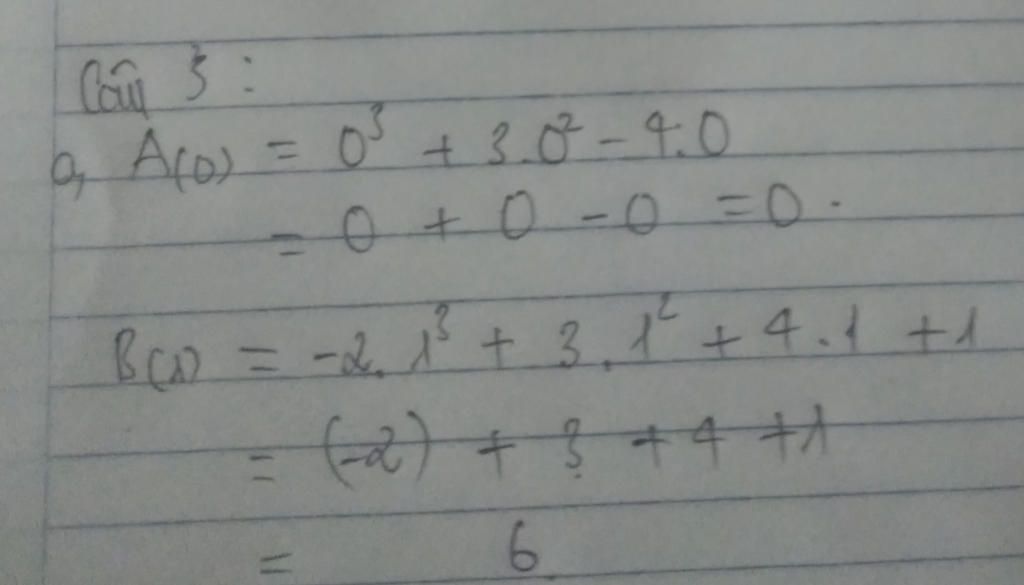 Câu 3 :
a, A(0) = 0³ + 3.0² - 4.0
= 0 + 0 - 0 = 0.
B(1) = -2.1³ + 3.1² + 4.1 + 1
= (-2) + 3 + 4 + 1
= 6